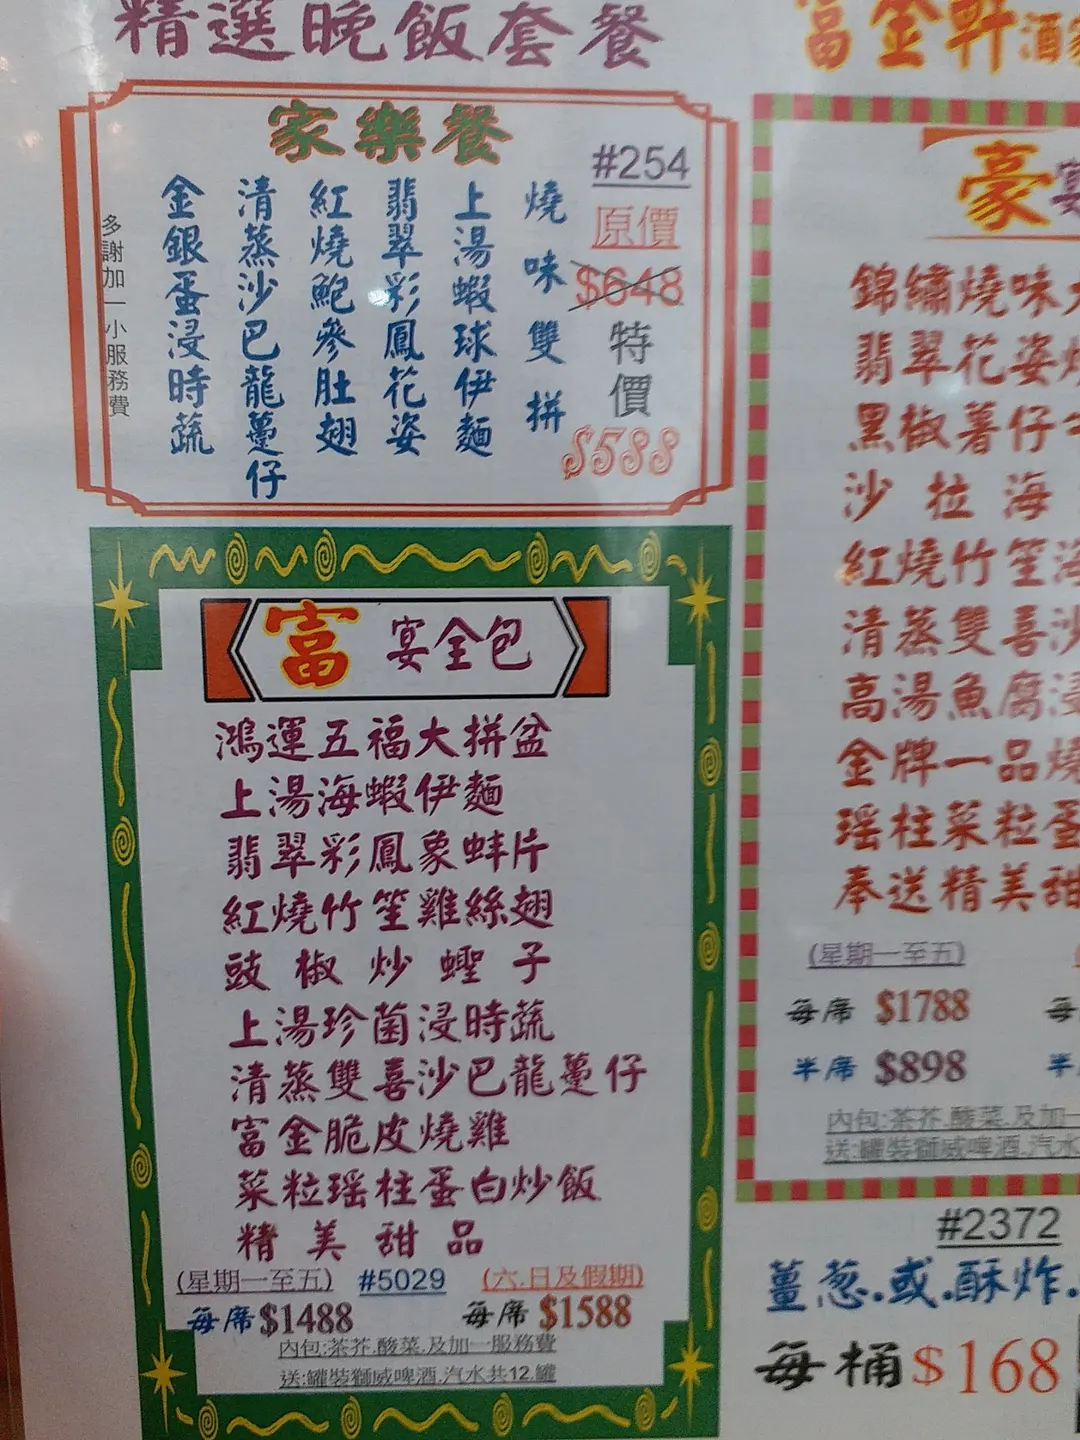 精選晚飯套餐
富金軒酒家
家樂餐
#254
原價
$648
特價
$588
燒味雙拼
上湯蝦球伊麵
翡翠彩鳳花姿
紅燒鮑參肚翅
清蒸沙巴龍躉仔
金銀蛋浸時蔬
多謝加一小服務費
富宴全包
鴻運五福大拼盆
上湯海蝦伊麵
翡翠彩鳳象蚌片
紅燒竹笙雞絲翅
豉椒炒蟶子
上湯珍菌浸時蔬
清蒸雙喜沙巴龍躉仔
富金脆皮燒雞
菜粒瑶柱蛋白炒飯
精美甜品
(星期一至五) #5029 (六.日及假期)
每席$1488 每席$1588
內包:茶芥.酸菜.及加一服務費
送:罐裝獅威啤酒.汽水共12.罐
豪宴
錦繡燒味
翡翠花姿
黑椒薯仔
沙拉海
紅燒竹笙海
清蒸雙喜沙
高湯魚腐浸
金牌一品燒
瑶柱菜粒蛋
奉送精美甜
(星期一至五)
每席 $1788 每
半席 $898 半
內包:茶芥.酸菜.及加一
送:罐裝獅威啤酒.汽水
#2372
薑葱.或.酥炸.
每桶$168